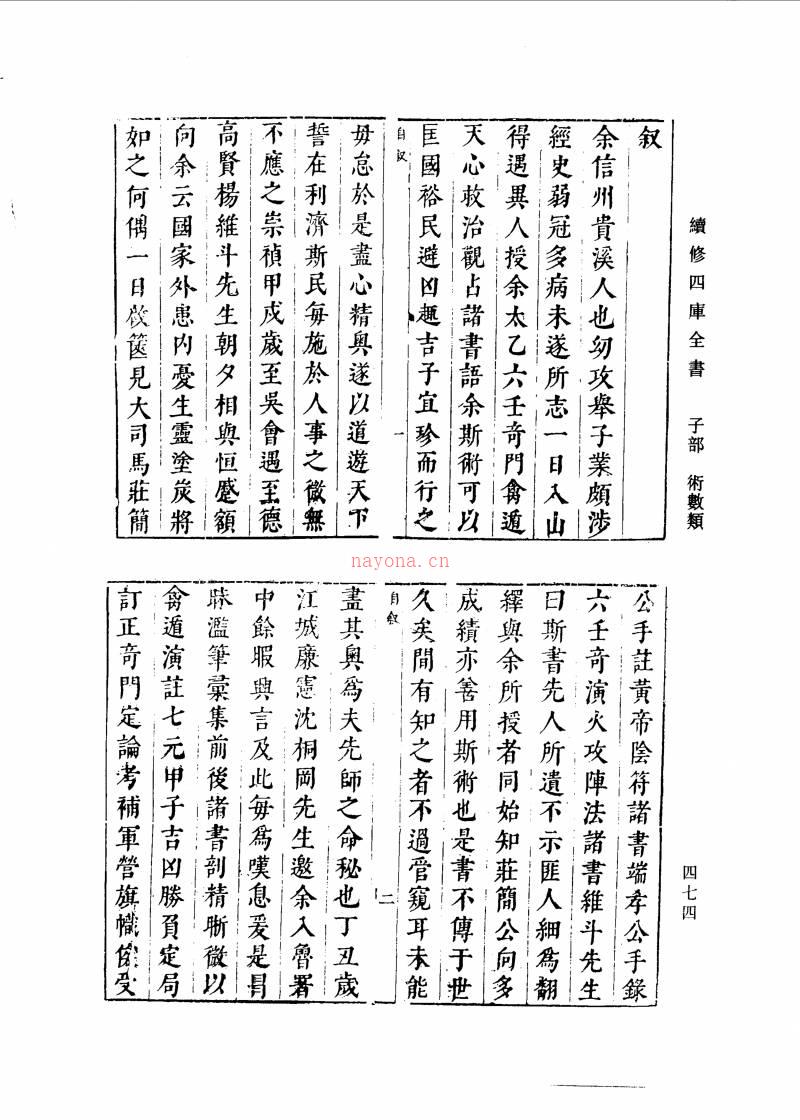 續修四庫全書　子部　術數類
叙
余信州貴溪人也幼攻舉子業頗涉
經史弱冠多病未遂所志一日入山
得遇異人授余太乙六壬竒門禽遁
天心救治觀占諸書語余斯術可以
匡國裕民避凶趣吉子宜珍而行之
自叙
一
毋怠於是盡心精奥遂以道遊天下
誓在利濟斯民每施於人事之微無
不應之崇禎甲戌歲至吳會遇至德
高賢楊維斗先生朝夕相與恒蹙額
向余云國家外患内憂生靈塗炭將
如之何偶一日啟篋見大司馬莊簡
公手註黃帝陰符諸書端孝公手錄
六壬竒演火攻陣法諸書維斗先生
曰斯書先人所遺不示匪人細為翻
繹與余所授者同始知莊簡公向多
成績亦善用斯術也是書不傳于世
久矣間有知之者不過管窺耳未能
自叙
二
盡其奥為夫先師之命秘也丁丑歲
江城廉憲沈桐岡先生邀余入魯署
中餘暇興言及此每為嘆息爰是冐
昧濫筆彙集前後諸書剖精晣微以
禽遁演註七元甲子吉凶勝負定局
訂正竒門定論考補軍營旗幟條受
四七四
nayona.cn